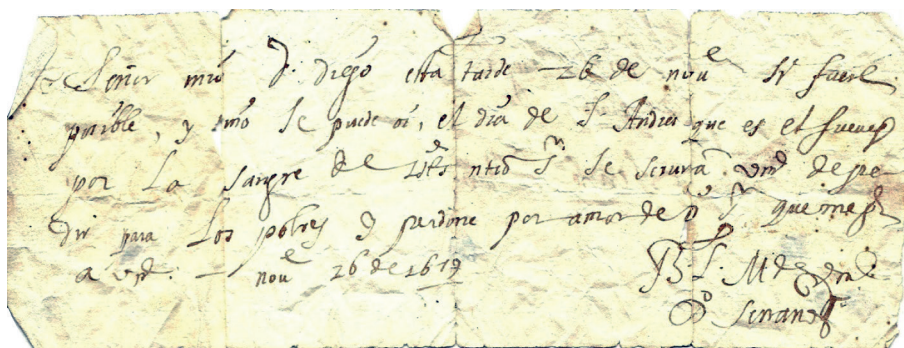 Señor mio D. Diego esta tarde 26 de nove si fuere
posible, y sino se puede oi, el dia de S Andres que es el jueves
por La sangre de ntro Sr se servira vmd de pe
dir para Los pobres y perdone por amor de que me
a vmd. nove 26 de 1619
B L M de vmd
Serrano